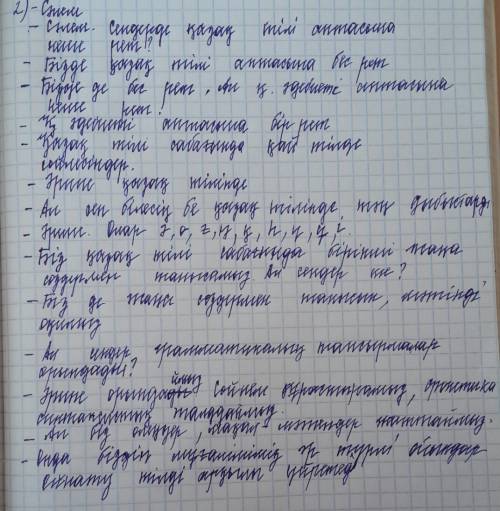 2) - Сәлем
- Сәлем. Сендерде қазақ тілі аптасына
неше рет?
- Бізде қазақ тілі аптасына бес рет
- Бізде де бес рет. Ал қ. әдебиеті аптасына
неше рет?
- Қ әдебиеті аптасына бір рет
- Қазақ тілі сабағында қай тілде
сөйлесіңдер.
- Әрине қазақ тілінде
- Ал сен білесің бе қазақ тілінде тән дыбыстарды
- Әрине. Олар
- Біз қазақ тілі сабағында бірінші жаңа
сөздермен танысамыз Ал сендер ше?
- Біз де жаңа сөздермен танысып, мәтінді
оқимыз
- Ал грамматикалық тапсырмалар
орындайды?
- Әрине орындаймыз сөйлем құрастырамыз, фонетика
синтаксистік талдаймыз.
- Ал біз өлеңдер, мәтіндер жаттаймыз.
- Онда біздің мұғаліміміз әр түрлі ойындар
ойнату тілді арқылы үйретеді